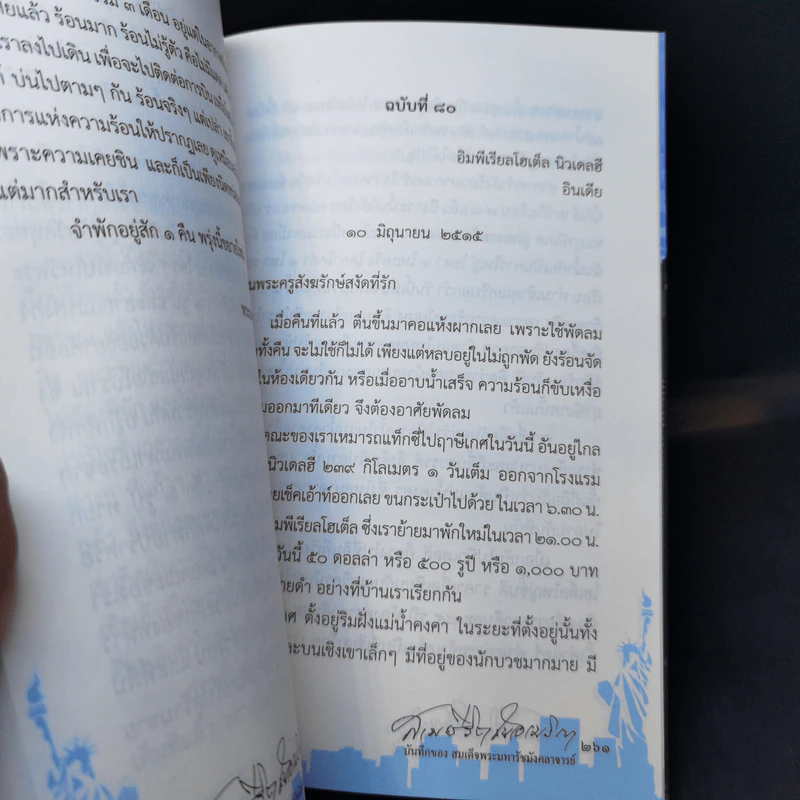 ๓ เดือน
ร้อนมาก ร้อนไม่รู้ตัว
ราลงไปเดิน เพื่อจะไปติดต่อการบิน
บ่นไปตามๆ กัน ร้อนจริงๆ
การแห่งความร้อนให้ปรากฏเลย
พราะความเคยชิน และก็เป็นเพียง
แต่มากสำหรับเรา
จำพักอยู่สัก ๑ คืน พรุ่งนี้
ฉบับที่ ๘๐
อิมพีเรียลโฮเต็ล นิวเดลฮี
อินเดีย
๑๐ มิถุนายน ๒๕๑๕
นพระครูสังฆรักษ์สงัดที่รัก
เมื่อคืนที่แล้ว ตื่นขึ้นมาคอแห้งผากเลย เพราะใช้พัดลม
ทั้งคืน จะไม่ใช้ก็ไม่ได้ เพียงแต่หลบอยู่ในไม่ถูกพัด ยังร้อนจัด
ในห้องเดียวกัน หรือเมื่ออาบน้ำเสร็จ ความร้อนก็ขับเหงื่อ
ออกมาทีเดียว จึงต้องอาศัยพัดลม
คณะของเราเหมารถแท็กซี่ไปฤาษีเกศในวันนี้ อันอยู่ไกล
นิวเดลฮี ๒๓๙ กิโลเมตร ๑ วันเต็ม ออกจากโรงแรม
ยเช็คเอ้าท์ออกเลย ขนกระเป๋าไปด้วย ในเวลา ๖.๓๐ น.
มพีเรียลโฮเต็ล ซึ่งเราย้ายมาพักใหม่ในเวลา ๒๑.๐๐ น.
วันนี้ ๕๐ ดอลล่า หรือ ๕๐๐ รูปี หรือ ๑,๐๐๐ บาท
ายดำ อย่างที่บ้านเราเรียกกัน
ศ ตั้งอยู่ริมฝั่งแม่น้ำคงคา ในระยะที่ตั้งอยู่นั้นทั้ง
ละบนเชิงเขาเล็กๆ มีที่อยู่ของนักบวชมากมาย มี
บันทึกของ สมเด็จพระมหารัชมังคลาจารย์ ๒๖๑